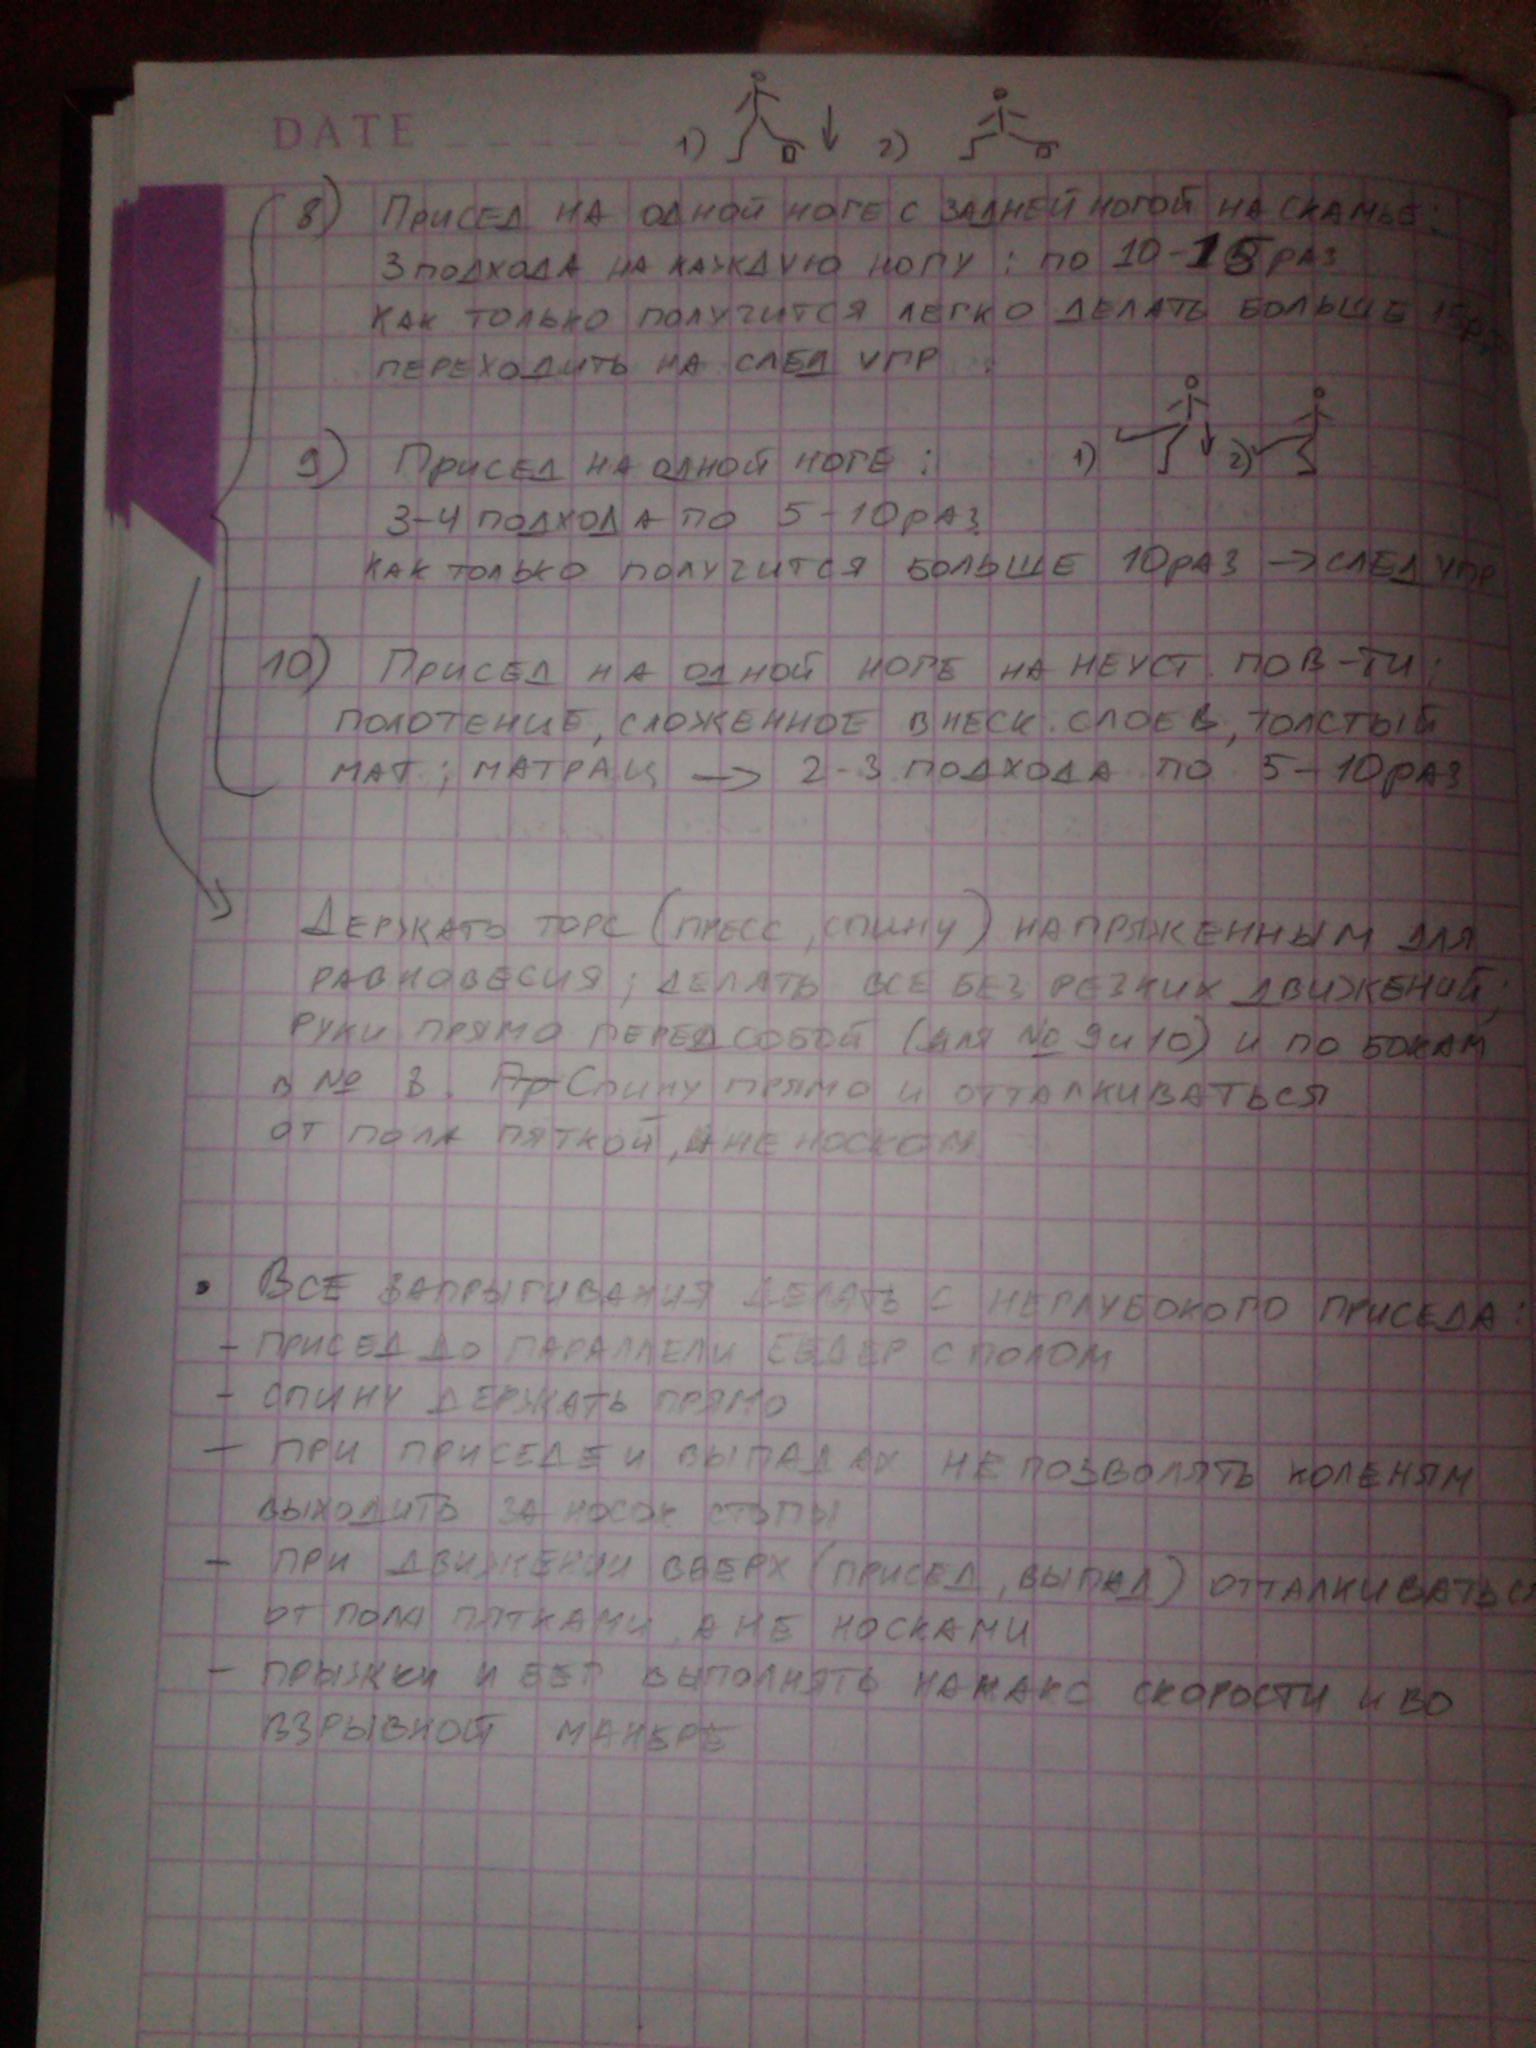 DATE
1) 2)
8) Присед на одной ноге с задней ногой на скамье:
3 подхода на каждую ногу: по 10-15 раз
как только получится легко делать больше 15 р
переходить на след упр
9) Присед на одной ноге: 1) 2)
3-4 подхода по 5-10 раз
как только получится больше 10 раз → след упр
10) Присед на одной ноге на неуст. пов-ти:
полотенце, сложенное в неск. слоев, толстый
мат; матрац → 2-3 подхода по 5-10 раз
Держать торс (пресс, спину) напряженным для
равновесия; делать все без резких движений;
руки прямо перед собой (для № 9 и 10) и по бокам
в № 8. Пр Спину прямо и отталкиваться
от пола пяткой, а не носком
• Все запрыгивания делать с неглубокого приседа:
- присед до параллели бедер с полом
- спину держать прямо
- при приседе и выпадах не позволять коленям
выходить за носок стопы
- при движении вверх (присед, выпад) отталкиваться
от пола пятками, а не носками
- прыжки и бег выполнять на макс скорости и во
взрывной манере